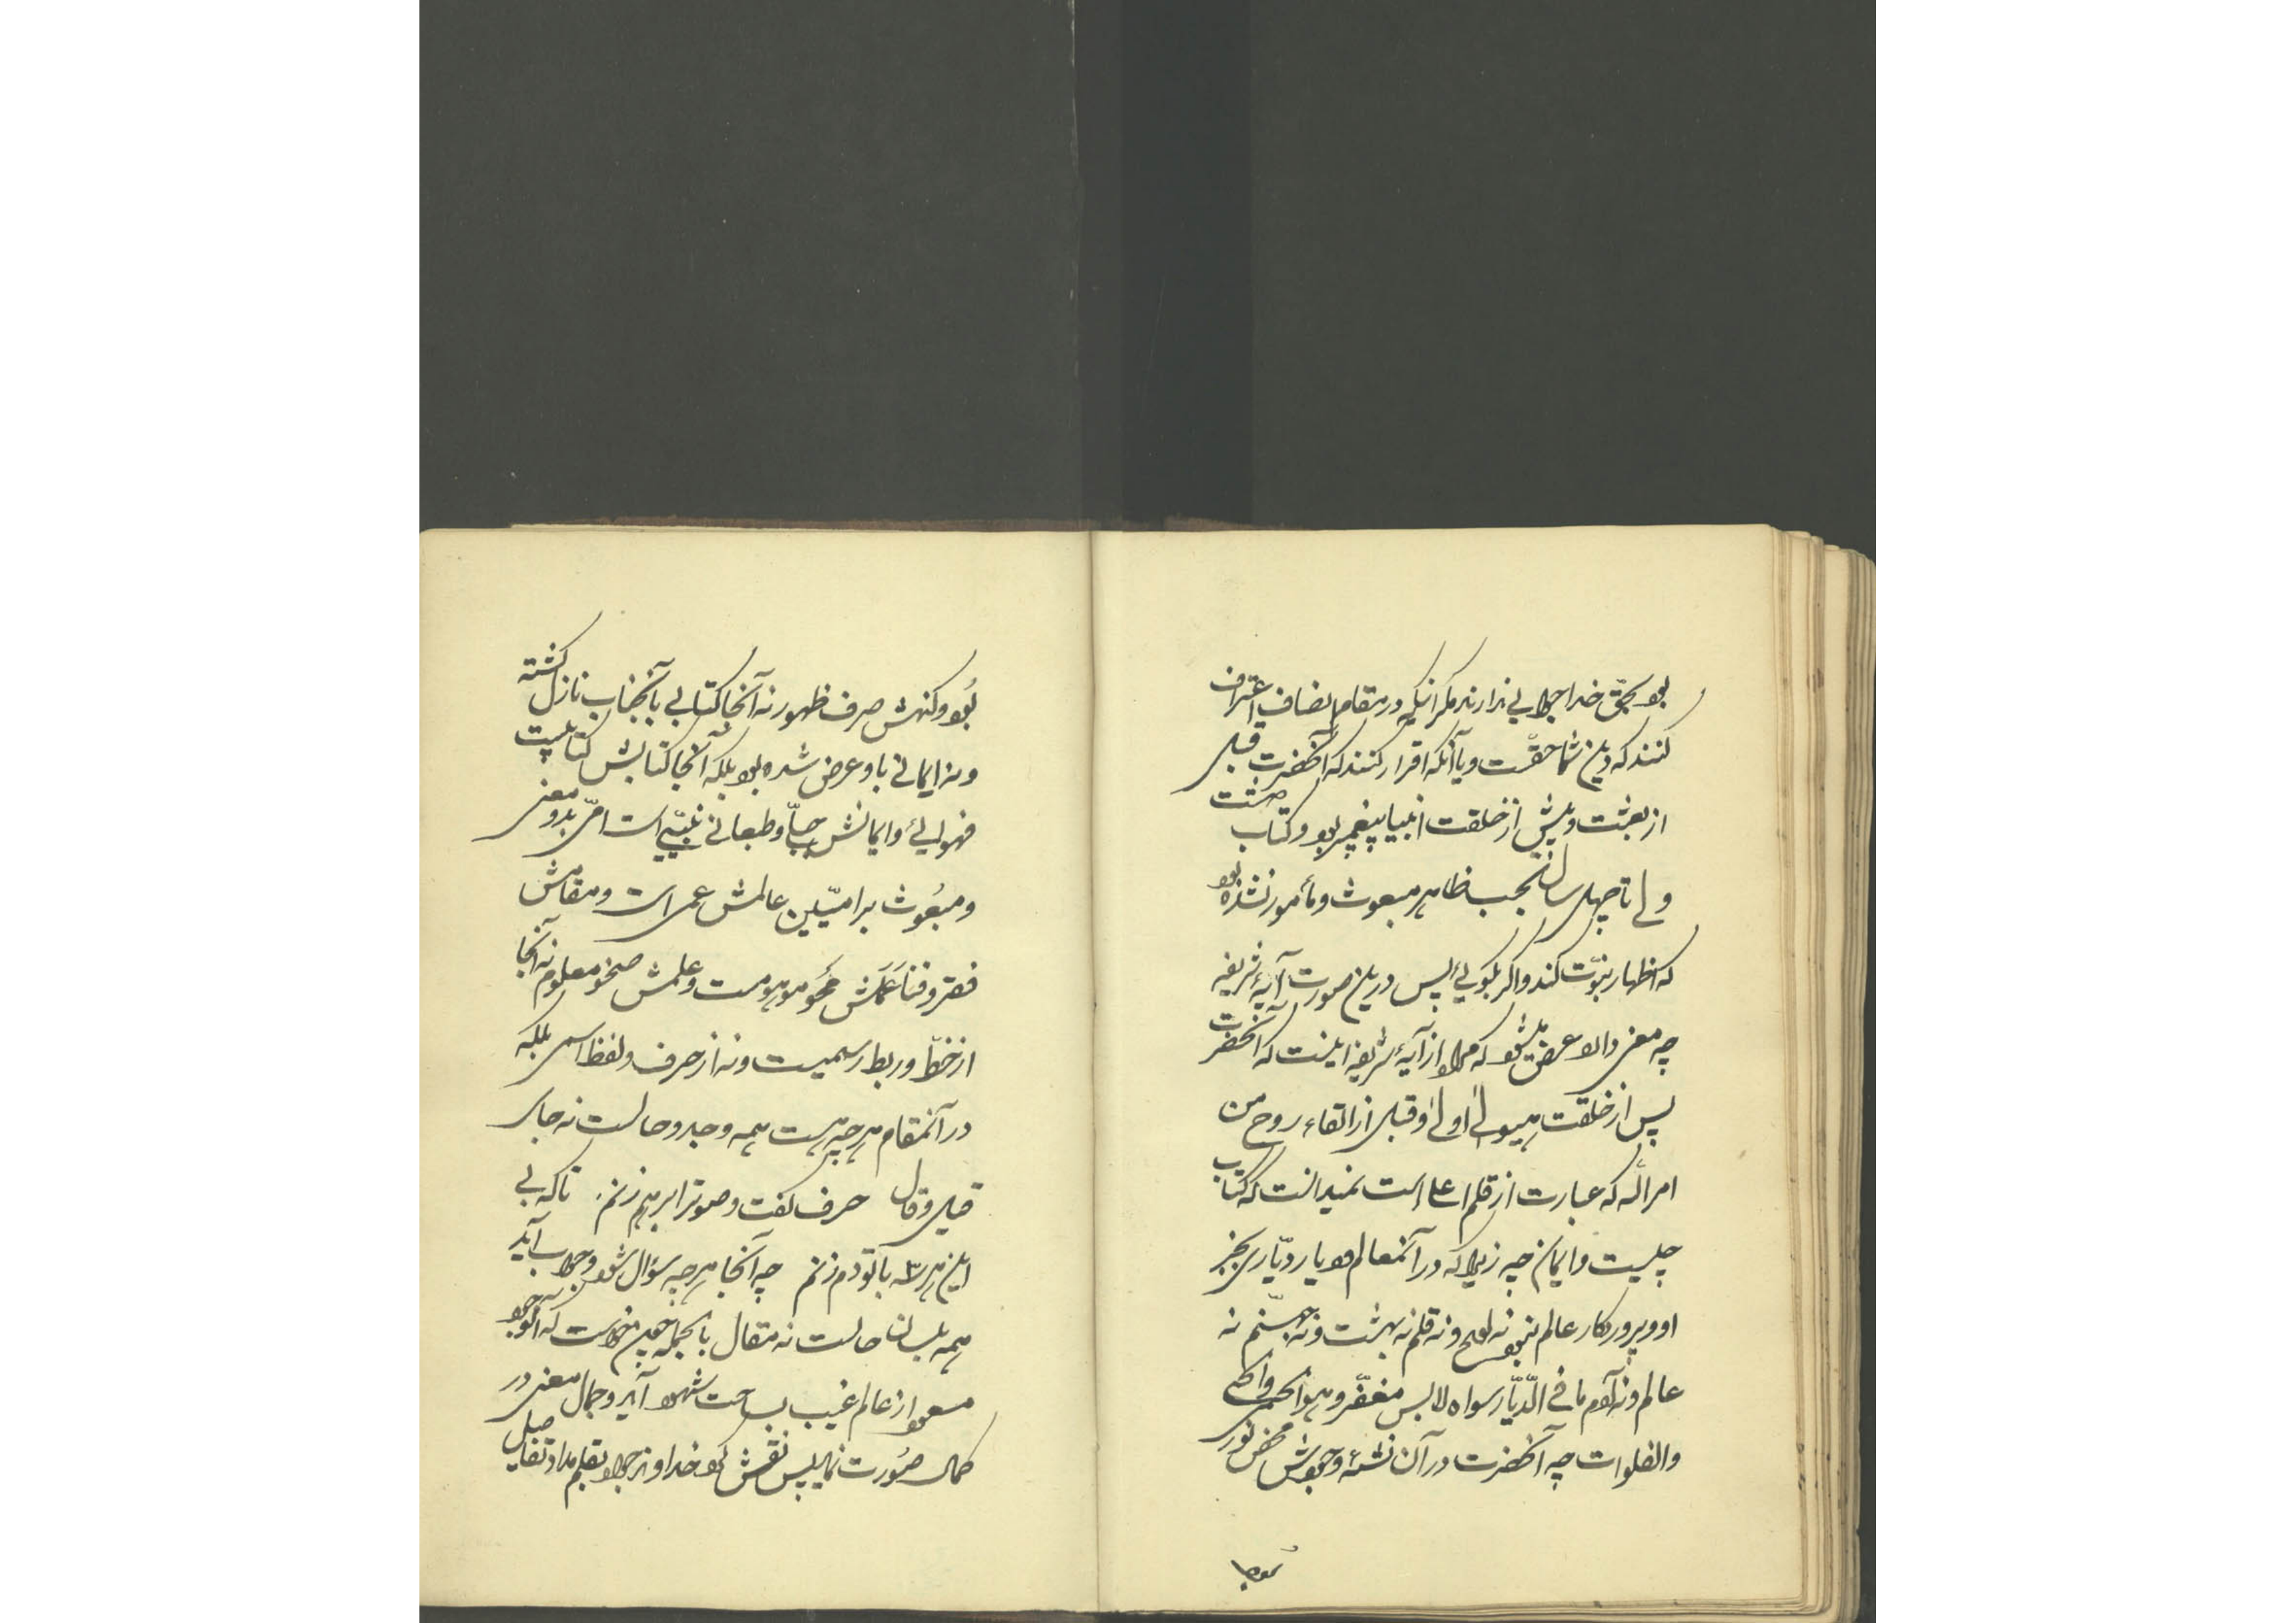 بود بحقّ خدا جوابی ندارند مگر اینکه در مقام انصاف اعتراف
کنند که دین شما حقّست و یا آنکه اقرار کنند که آنحضرت قبل
از بعثت و پیش از خلقت انبیا پیغمبر بود و کتاب داشت
ولی تا چهل سال بحسب ظاهر مبعوث و مأمور نشده بود
که اظهار نبوّت کند و اگر بگویی پس در این صورت آیهٔ شریفه
چه معنی دارد عرض میشود که مراد از آیهٔ شریفه اینست که آنحضرت
پس از خلقت هیولی اولی و قبل از القاء روح من
امر الله که عبارت از قلم اعلی است نمیدانست که کتاب
چیست و ایمان چه زیرا که در آنمعالم دیار و دیّاری بجز
او و پروردکار عالم نبود نه لوح و نه قلم نه بهشت و نه جهنّم نه
عالم و نه آدم ما فی الدّیّار سواه لابس مغفّر و هو الحمی و الحیّ
و الفلوات چه آنحضرت در آن نشئه وجودش محض نور
بود و کنهش صرف ظهور نه آنجا کتابی بآنجناب نازل کشته
و نه ایمانی باو عرض شده بود بلکه آنجا کتابش کتابیست
فهوایی و ایمانش جبلّی و طبعانی نبیّی است امّی بدو معنی
و مبعوث بر امیّین عالمش عمی است و مقامش
فقر و فنا عملش محو موهومست و علمش صحو معلوم نه آنجا
از خطّ و ربط رسمیست و نه از حرف و لفظ اسمی بلکه
در آنمقام هر چه هست همه وجد و حالست نه جای
قیل و قال حرف کفت و صوترا برهم زنم تا که بی
این هر سه با تو دم زنم چه آنجا هر چه سؤال شود و جواب آید
همه بلسان حالست نه مقال بالجمله چون خواست که آنوجود
مسعود از عالم غیب بساحت شهود آید و جمال معنی در
کمال صورت نماید پس نقش کرد خداوند جواد بقلم مداد تفاصیل